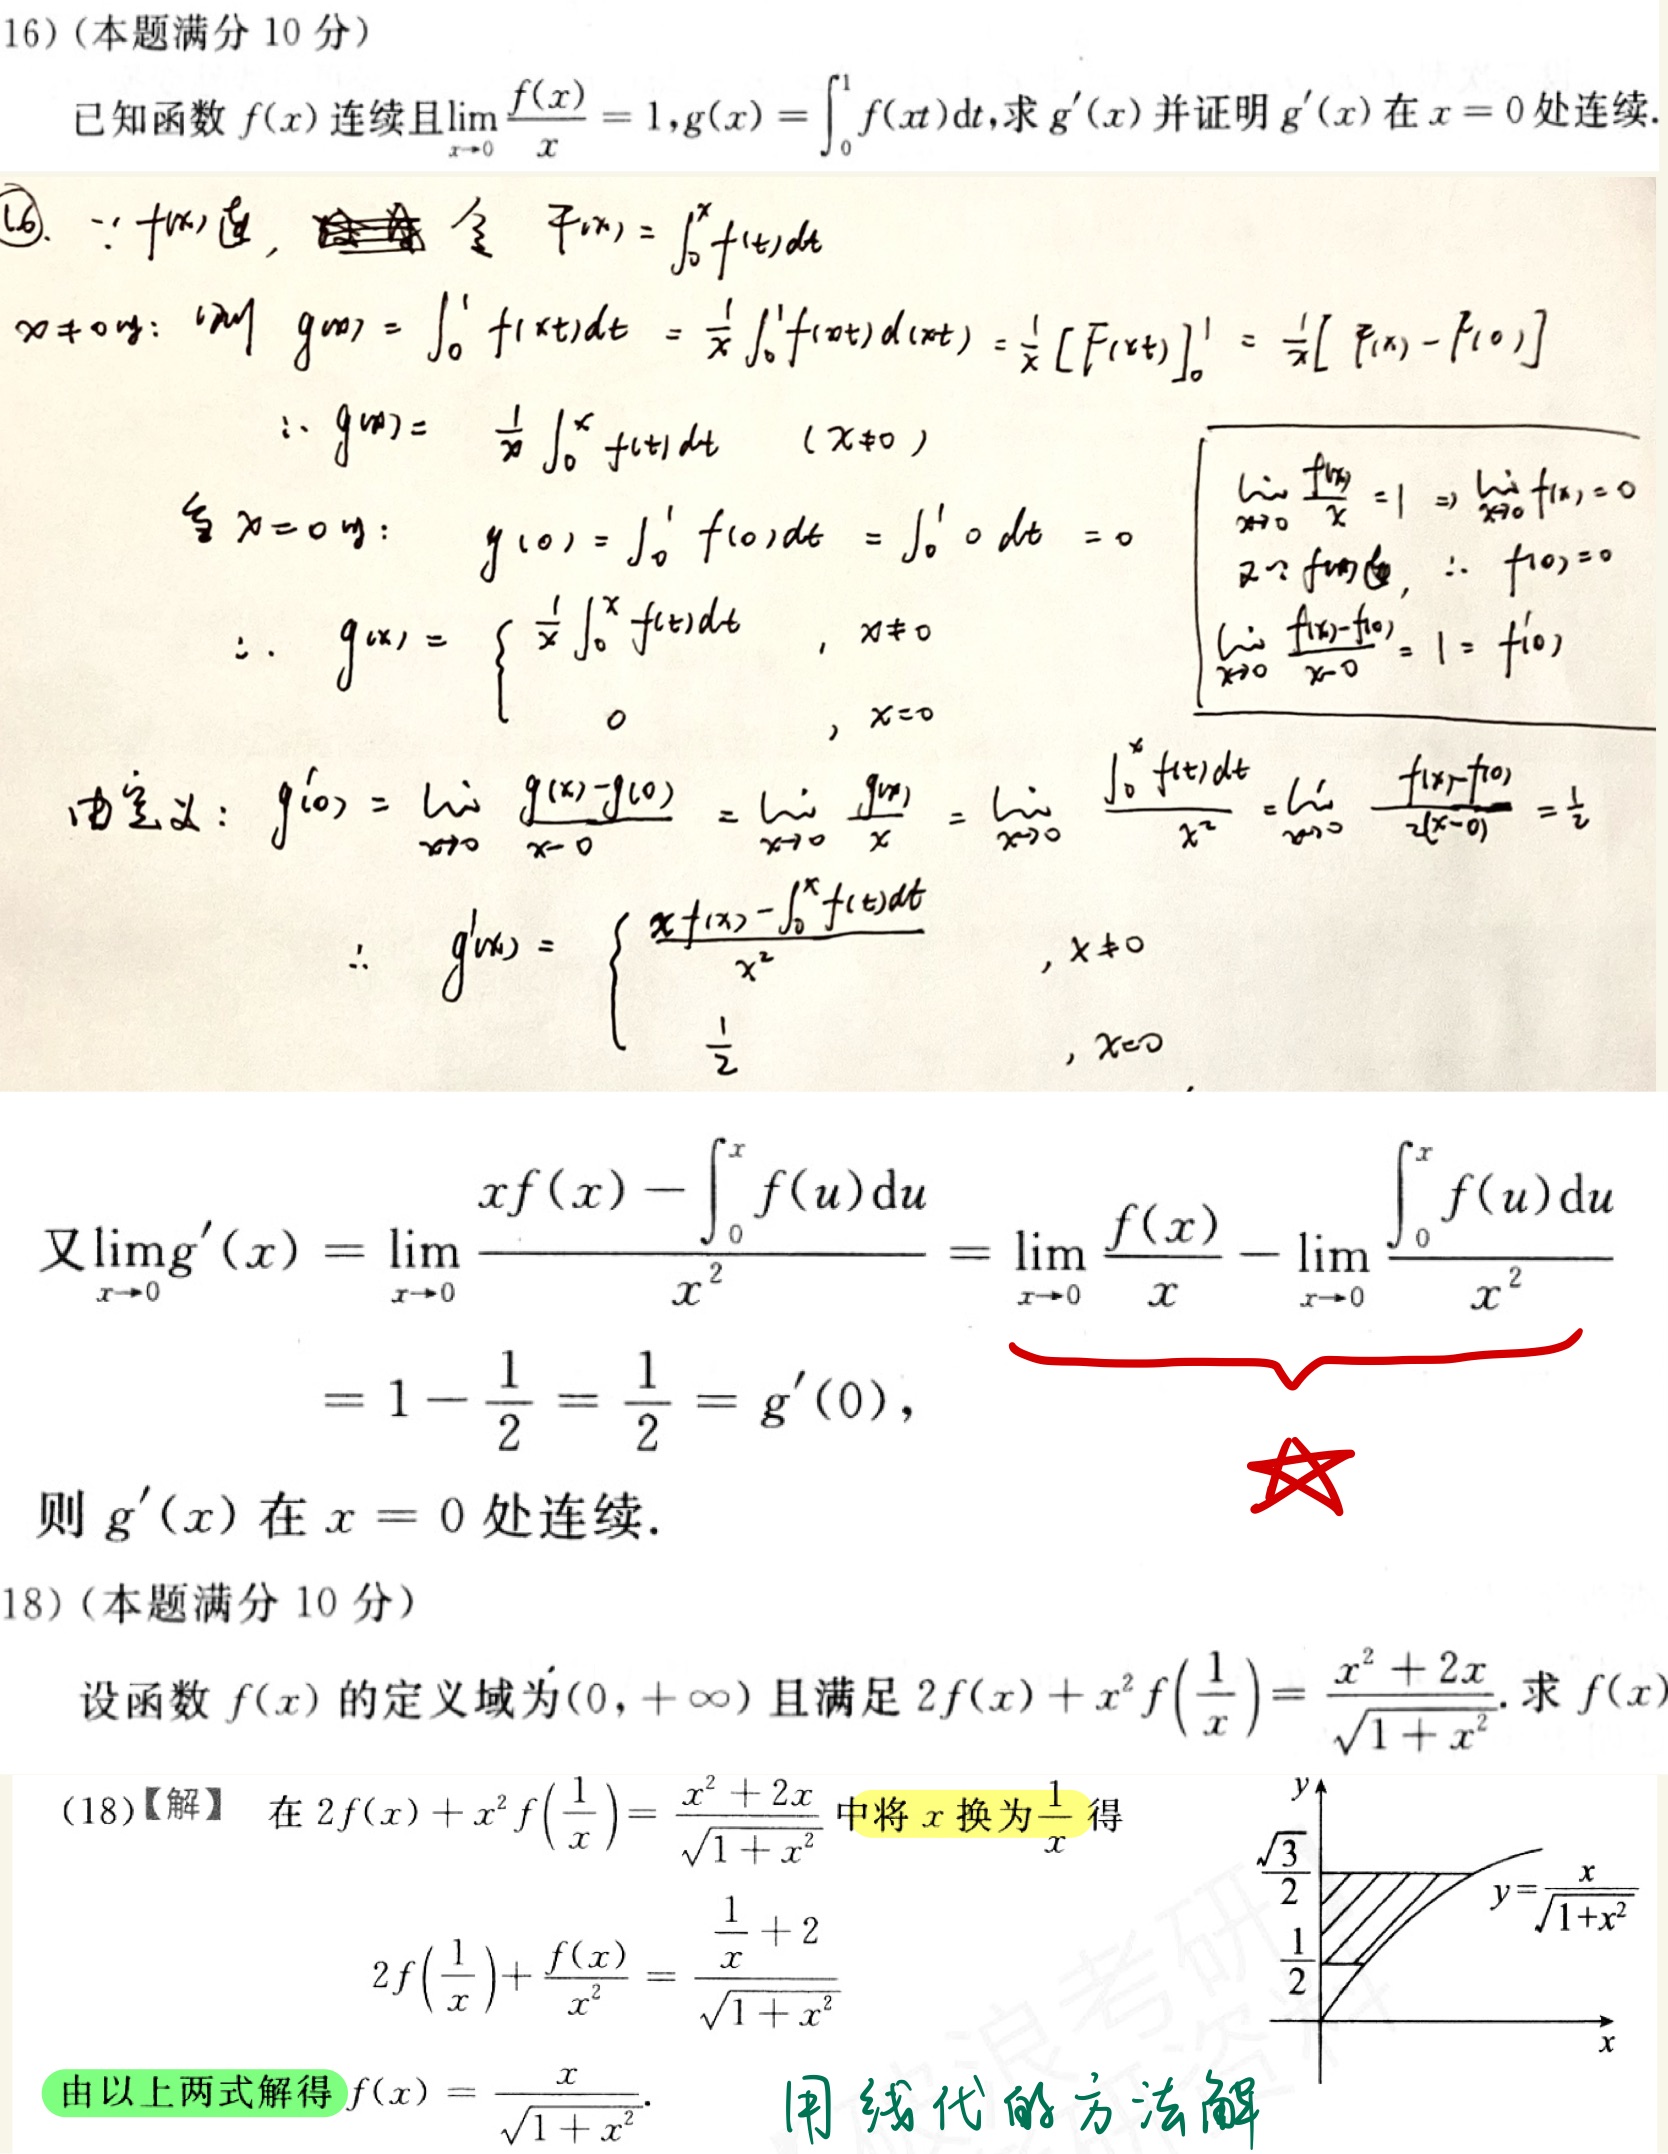 16) (本题满分 10 分)
已知函数 f(x) 连续且 lim_{x→0} f(x)/x = 1, g(x) = ∫_0^1 f(xt)dt, 求 g′(x) 并证明 g′(x) 在 x = 0 处连续.
⑯. ∵ f(x)连, 令 F(x) = ∫_0^x f(t)dt
x≠0时: 则 g(x) = ∫_0^1 f(xt)dt = 1/x ∫_0^1 f(xt)d(xt) = 1/x [F(xt)]_0^1 = 1/x [F(x) - F(0)]
∴ g(x) = 1/x ∫_0^x f(t)dt (x≠0)
当 x=0时: g(0) = ∫_0^1 f(0)dt = ∫_0^1 0 dt = 0
∴ g(x) = { 1/x ∫_0^x f(t)dt , x≠0
0 , x=0
lim_{x→0} f(x)/x = 1 ⇒ lim_{x→0} f(x) = 0
又∵ f(x)连, ∴ f(0)=0
lim_{x→0} (f(x)-f(0))/(x-0) = 1 = f′(0)
由定义: g′(0) = lim_{x→0} (g(x)-g(0))/(x-0) = lim_{x→0} g(x)/x = lim_{x→0} ∫_0^x f(t)dt / x² = lim_{x→0} (f(x)-f(0))/(2(x-0)) = 1/2
∴ g′(x) = { (x f(x) - ∫_0^x f(t)dt)/x² , x≠0
1/2 , x=0
又 lim_{x→0} g′(x) = lim_{x→0} (xf(x) - ∫_0^x f(u)du)/x² = lim_{x→0} f(x)/x - lim_{x→0} ∫_0^x f(u)du / x²
= 1 - 1/2 = 1/2 = g′(0),
则 g′(x) 在 x = 0 处连续.
18) (本题满分 10 分)
设函数 f(x) 的定义域为(0, +∞) 且满足 2f(x) + x² f(1/x) = (x² + 2x)/√(1 + x²). 求 f(x)
(18)【解】 在 2f(x) + x² f(1/x) = (x² + 2x)/√(1 + x²) 中将 x 换为 1/x 得
2f(1/x) + f(x)/x² = (1/x + 2)/√(1 + x²)
由以上两式解得 f(x) = x/√(1 + x²).
用线代的方法解
y
√3/2
1/2
y = x/√(1+x²)
x